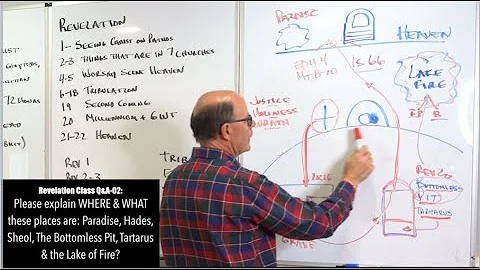 REVELATION
1 - SEEING CHRIST ON PATMOS
2-3 THINGS THAT ARE IN 7 CHURCHES
4-5 WORSHIP SCENE HEAVEN
6-18 TRIBULATION
19 SECOND COMING
20 MILLENNIUM & GWT
21-22 HEAVEN
REV 1
REV 2-3
TRIB
PARADISE
HEAVEN
EPH 4
Is. 66
LAKE
FIRE
JUSTICE
HOLINESS
WRATH
B
REV 20
BOTTOMLESS
PIT
TARTARUS
GRAVE
Revelation Class Q&A-02:
Please explain WHERE & WHAT
these places are: Paradise, Hades,
Sheol, The Bottomless Pit, Tartarus
& the Lake of Fire?